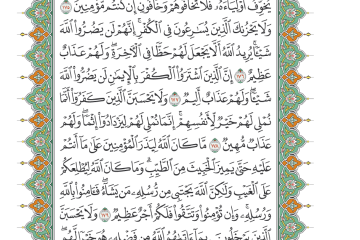 يُخَوِّفُ أَوْلِيَآءَهُۥ فَلَا تَخَافُوهُمْ وَخَافُونِ إِن كُنتُم مُّؤْمِنِينَ ١٧٥
وَلَا يَحْزُنكَ ٱلَّذِينَ يُسَٰرِعُونَ فِى ٱلْكُفْرِ إِنَّهُمْ لَن يَضُرُّوا۟ ٱللَّهَ
شَيْـًٔا يُرِيدُ ٱللَّهُ أَلَّا يَجْعَلَ لَهُمْ حَظًّا فِى ٱلْـَٔاخِرَةِ وَلَهُمْ عَذَابٌ
عَظِيمٌ ١٧٦ إِنَّ ٱلَّذِينَ ٱشْتَرَوُا۟ ٱلْكُفْرَ بِٱلْإِيمَٰنِ لَن يَضُرُّوا۟ ٱللَّهَ
شَيْـًٔا وَلَهُمْ عَذَابٌ أَلِيمٌ ١٧٧ وَلَا يَحْسَبَنَّ ٱلَّذِينَ كَفَرُوٓا۟ أَنَّمَا
نُمْلِى لَهُمْ خَيْرٌ لِّأَنفُسِهِمْ إِنَّمَا نُمْلِى لَهُمْ لِيَزْدَادُوٓا۟ إِثْمًا وَلَهُمْ
عَذَابٌ مُّهِينٌ ١٧٨ مَّا كَانَ ٱللَّهُ لِيَذَرَ ٱلْمُؤْمِنِينَ عَلَىٰ مَآ أَنتُمْ
عَلَيْهِ حَتَّىٰ يَمِيزَ ٱلْخَبِيثَ مِنَ ٱلطَّيِّبِ وَمَا كَانَ ٱللَّهُ لِيُطْلِعَكُمْ
عَلَى ٱلْغَيْبِ وَلَٰكِنَّ ٱللَّهَ يَجْتَبِى مِن رُّسُلِهِۦ مَن يَشَآءُ فَـَٔامِنُوا۟ بِٱللَّهِ
وَرُسُلِهِۦ وَإِن تُؤْمِنُوا۟ وَتَتَّقُوا۟ فَلَكُمْ أَجْرٌ عَظِيمٌ ١٧٩ وَلَا يَحْسَبَنَّ
ٱلَّذِينَ يَبْخَلُونَ بِمَآ ءَاتَىٰهُمُ ٱللَّهُ مِن فَضْلِهِۦ هُوَ خَيْرًا لَّهُم